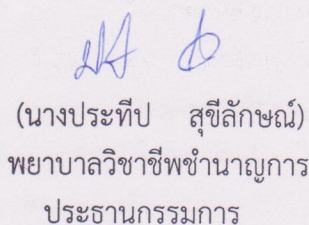 (นางประทีป สุขีลักษณ์)
พยาบาลวิชาชีพชำนาญการ
ประธานกรรมการ